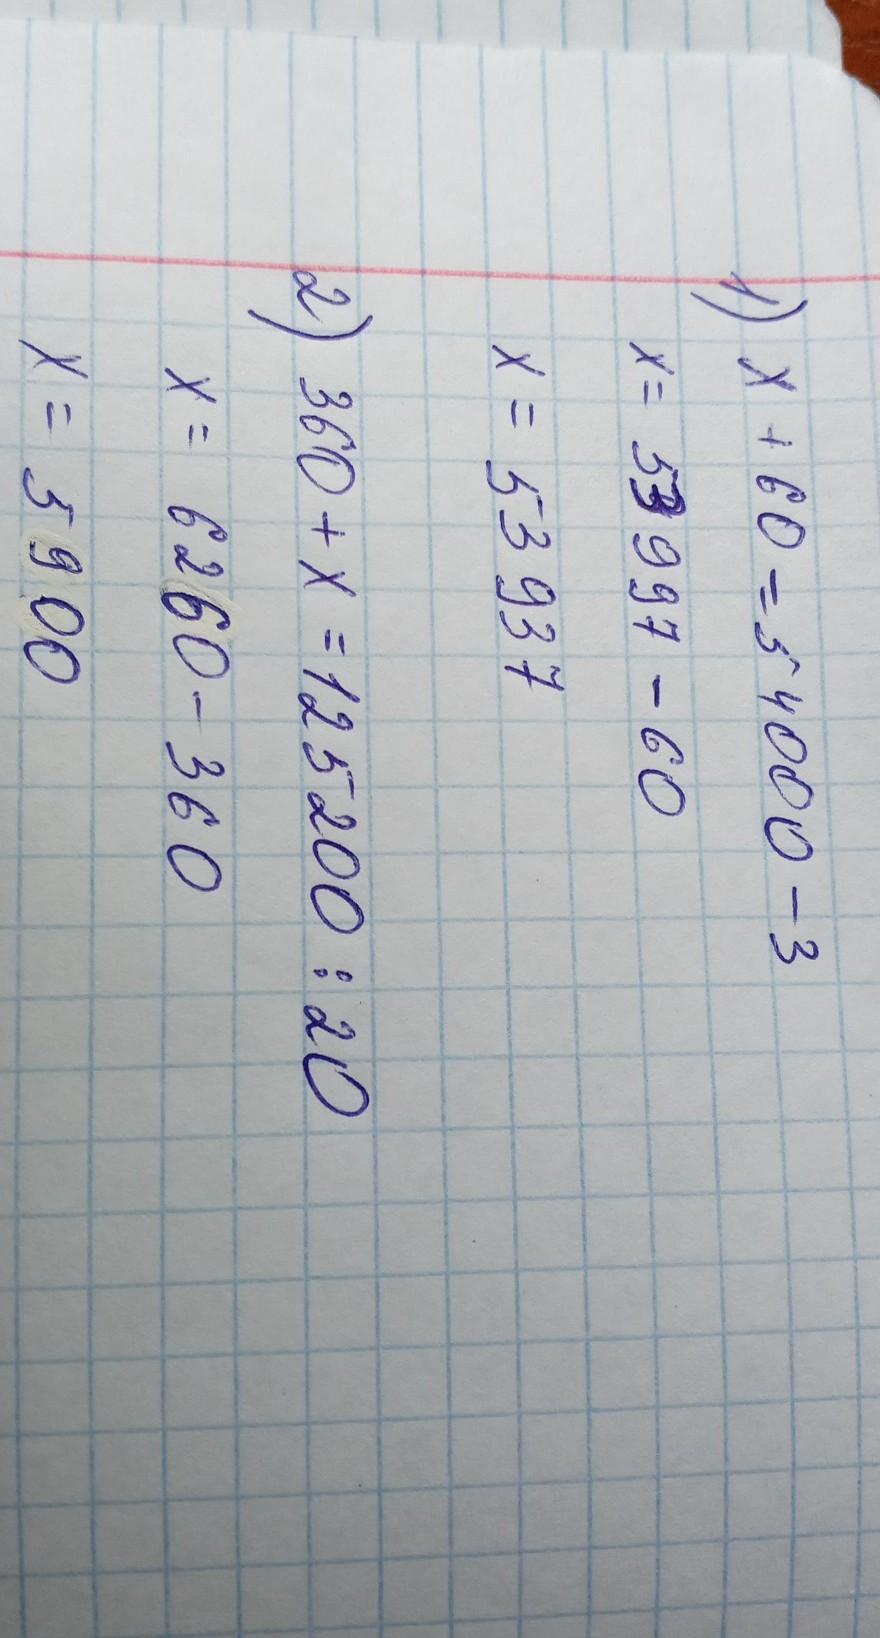 1) x + 60 = 54000 - 3
x = 53997 - 60
x = 53937
2) 360 + x = 125200 : 20
x = 6260 - 360
x = 5900